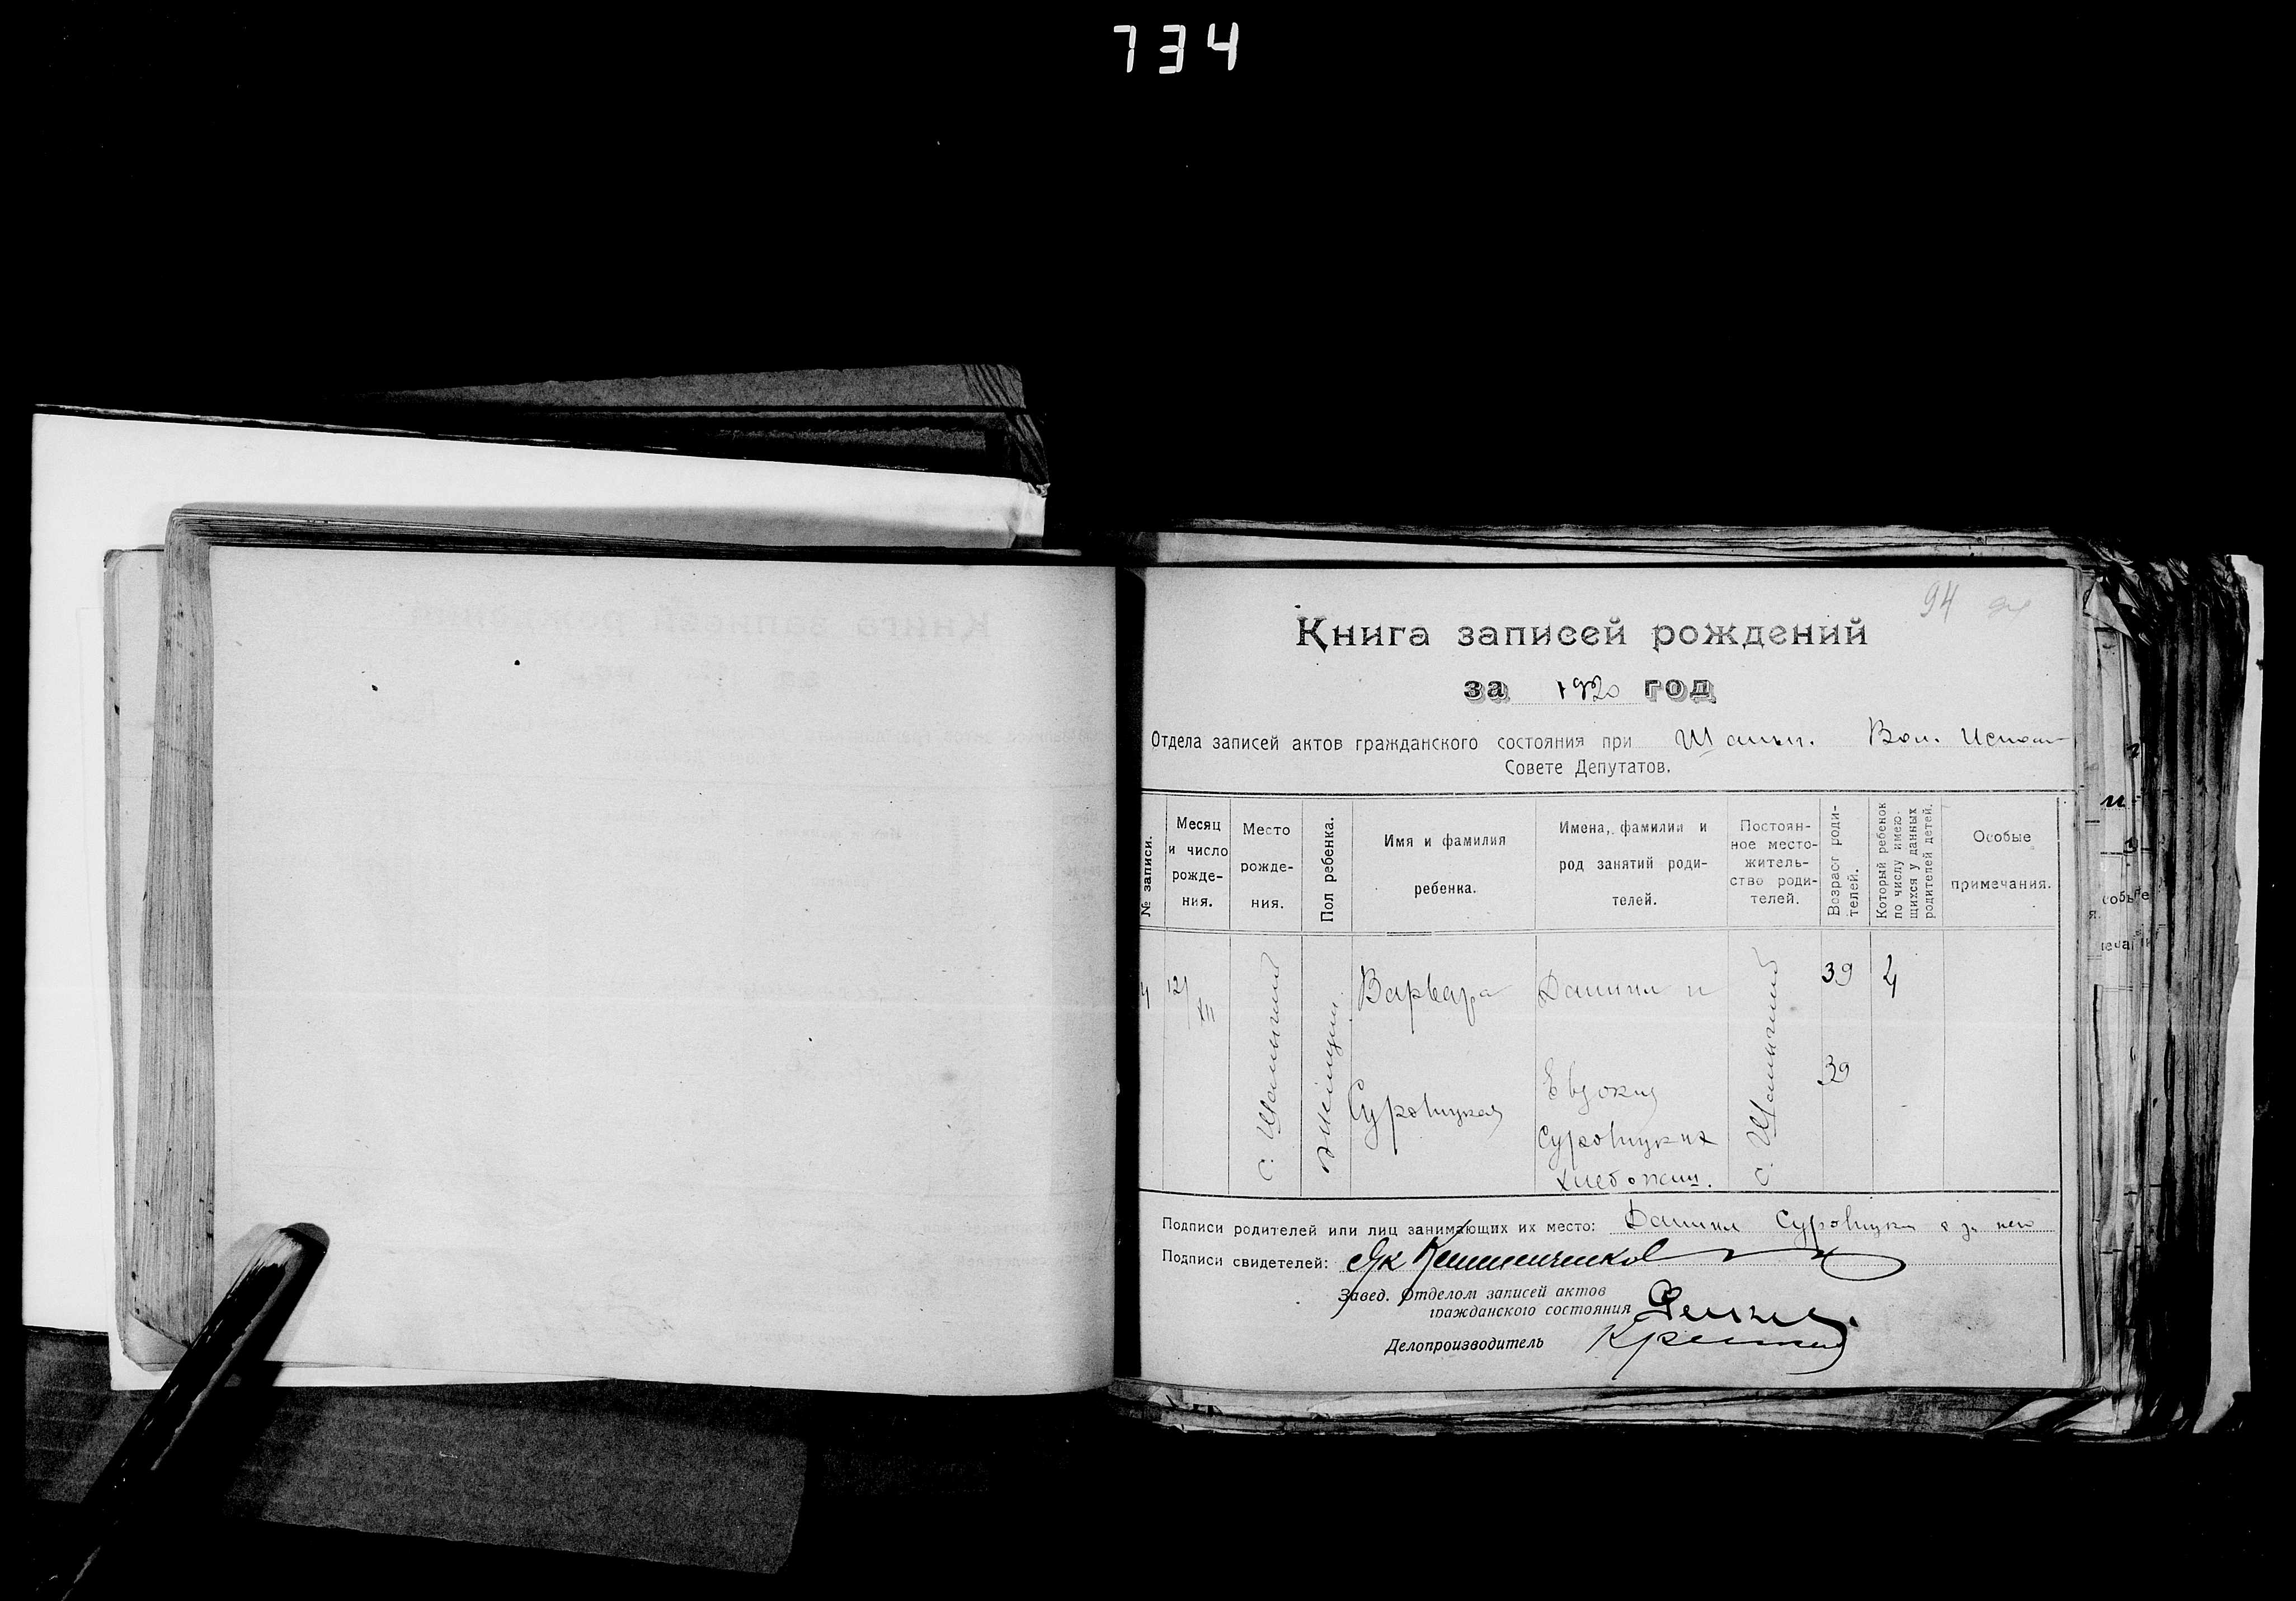 734
94
Книга записей рождений
за 1920 год
Отдела записей актов гражданского состояния при Вол. Исполн
Совете Депутатов.
№ записи.
Месяц и число рожде-ния.
Место рожде-ния.
Пол ребенка.
Имя и фамилия ребенка.
Имена, фамилии и род занятий роди-телей.
Постоян-ное место-житель-ство роди-телей.
Возраст роди-телей.
Который ребенок по числу имею-щихся у данных родителей детей.
Особые примечания.
4
12/XII
с.
Варвара
Суровицкая
Даниил и
Евдокия
Суровицких
хлебопаш.
с.
39
39
4
Подписи родителей или лиц занимающих их место: Даниил Суровицки а за него
Подписи свидетелей: Як
Завед. Отделом записей актов
гражданского состояния
Делопроизводитель